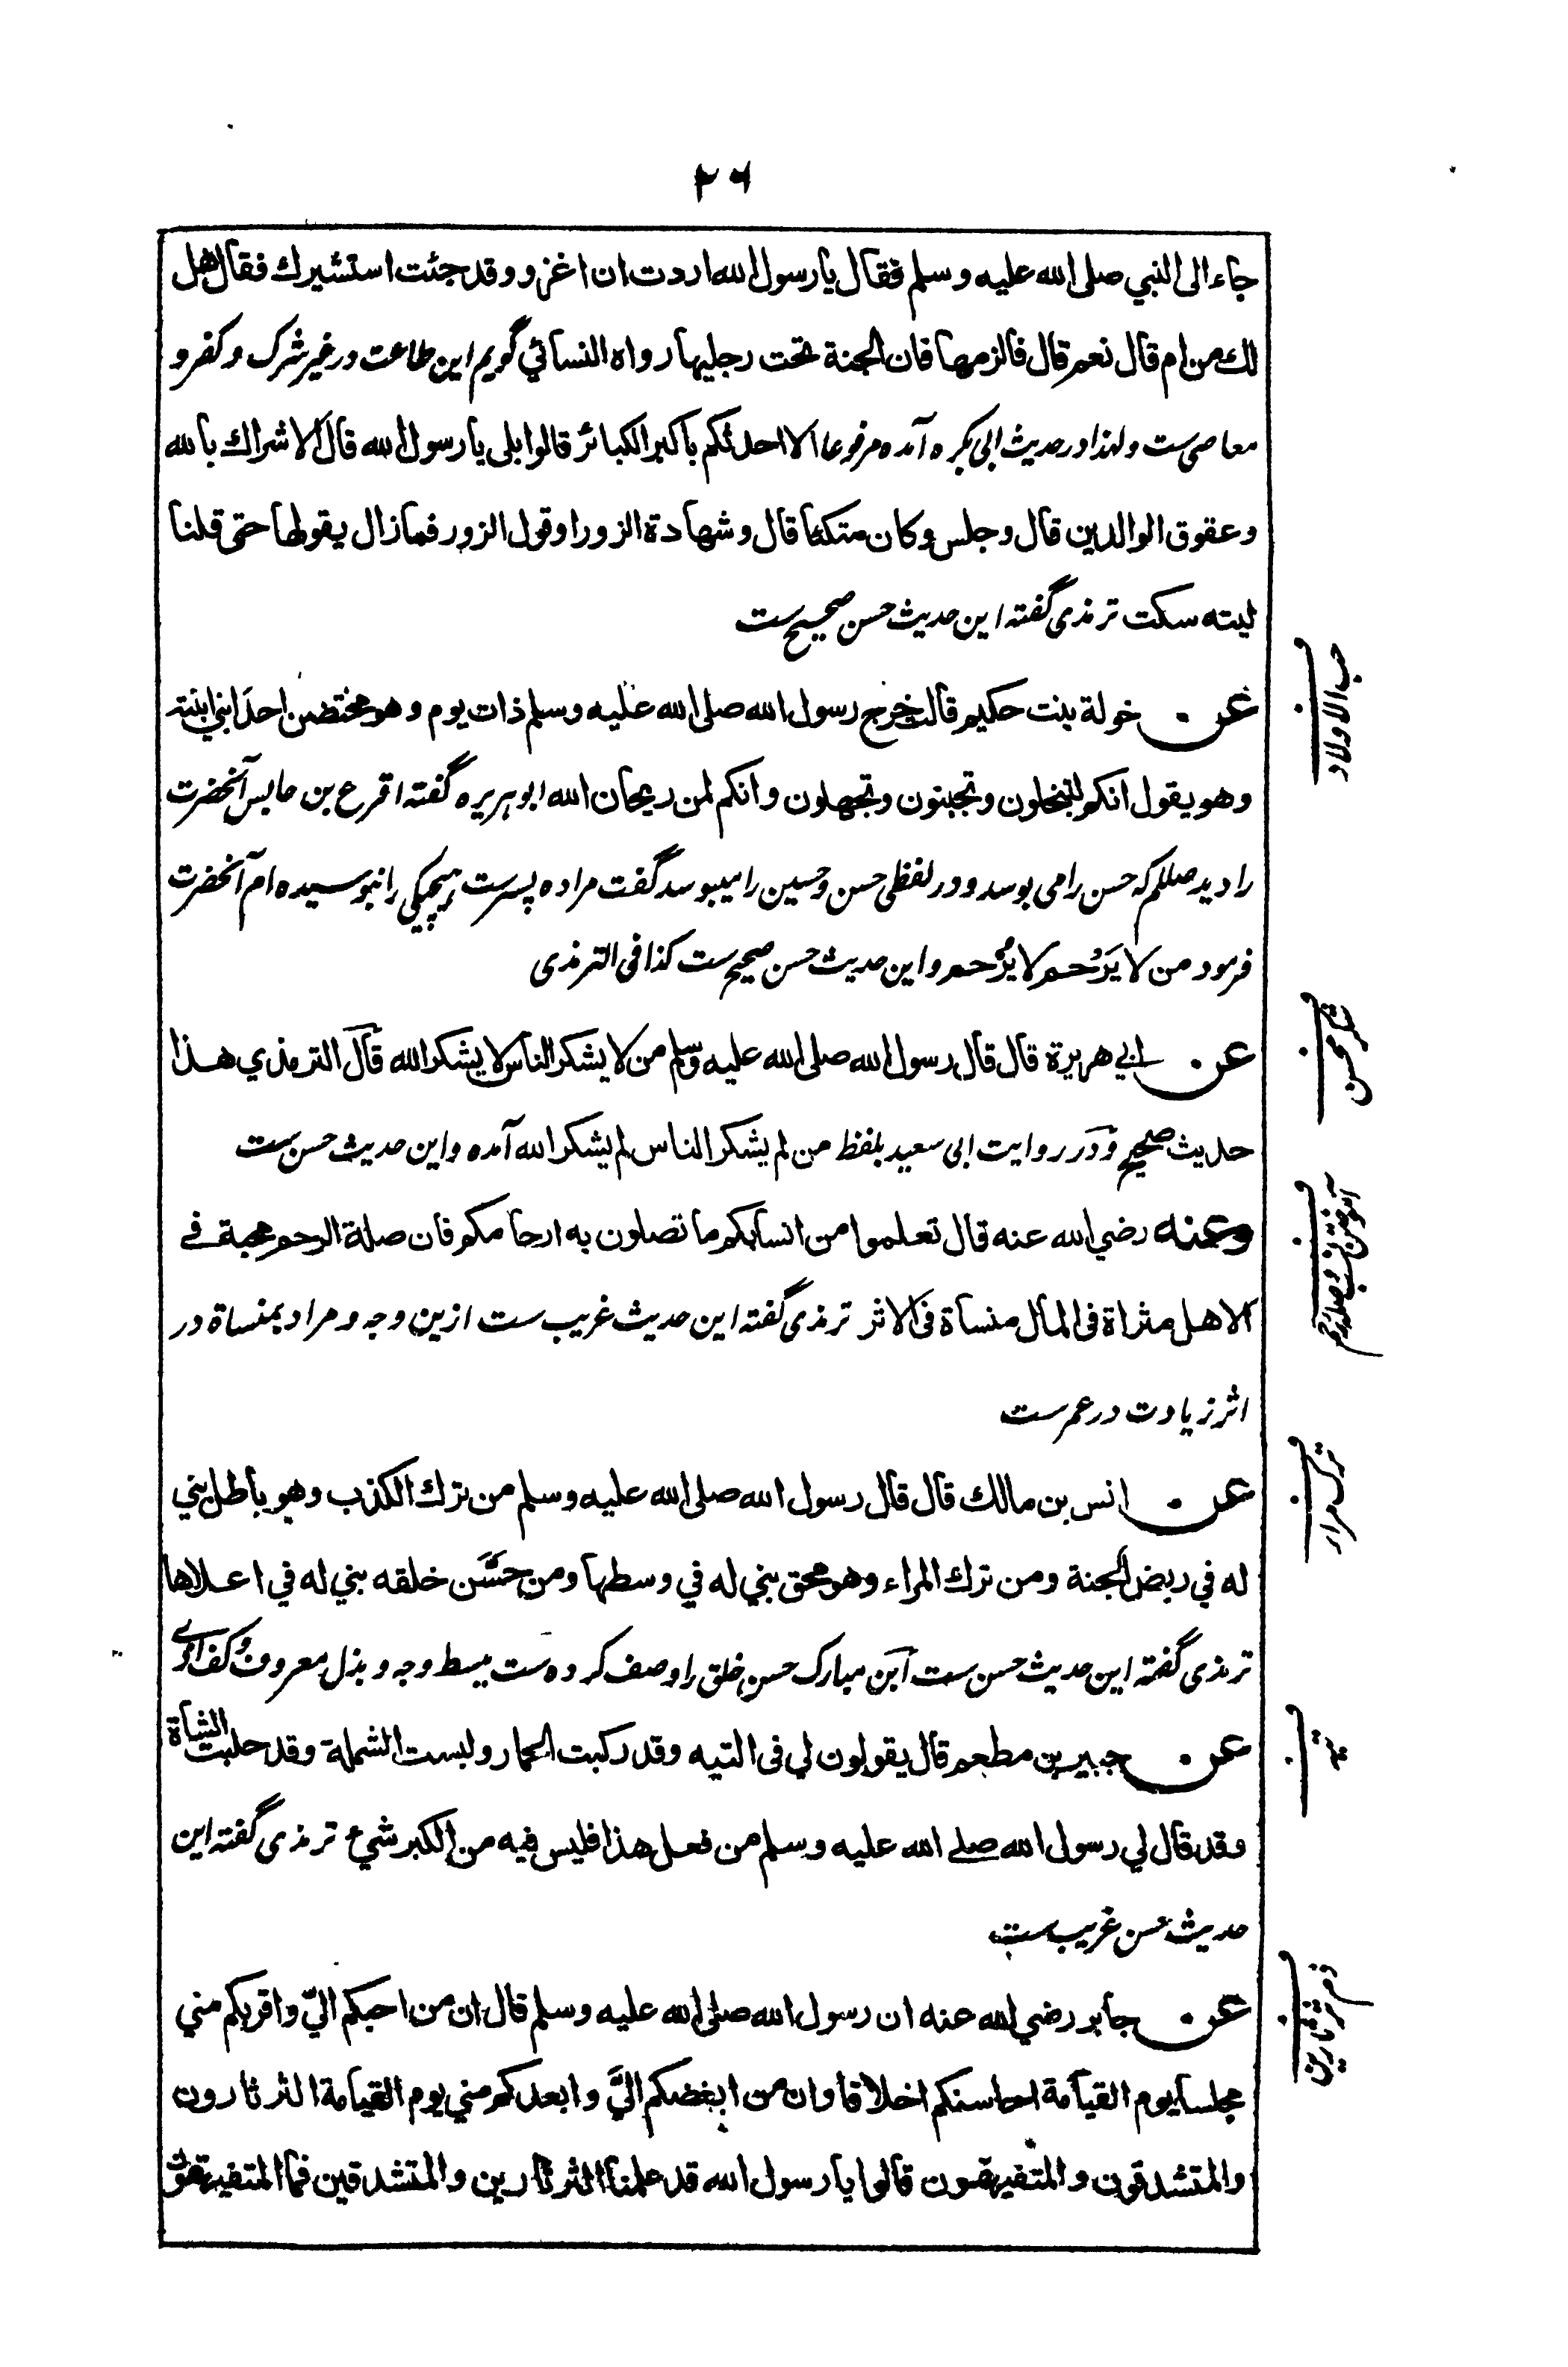 ۲۶
جاء الى النبي صلى الله عليه وسلم فقال يا رسول الله اردت ان اغزو وقد جئت استشيرك فقال هل
لك من ام قال نعم قال فالزمها فان الجنة تحت رجليها رواه النسائي گويم اين طاعت در غير شرك و كفر و
معاصى ست ولهذا در حديث ابى بكره آمده مرفوعا الا احدثكم باكبر الكبائر قالوا بلى يا رسول الله قال الاشراك بالله
وعقوق الوالدين قال وجلس وكان متكئا قال وشهادة الزور او قول الزور فما زال يقولها حتى قلنا
ليته سكت ترمذى گفته اين حديث حسن صحيح ست
حب الاولاد
عن خولة بنت حكيم قالت خرج رسول الله صلى الله عليه وسلم ذات يوم وهو محتضن احد ابني ابنته
وهو يقول انكم لتبخلون وتجبنون وتجهلون وانكم لمن ريحان الله ابو هريره گفته اقرع بن حابس آنحضرت
را ديد صللم كه حسن را مى بوسد و در لفظى حسن و حسين را ميبوسد گفت مرا ده پسرست هيچيكى را نبوسيده ام آنحضرت
فرمود من لا يَرْحم لا يُرْحم و اين حديث حسن صحيح ست كذا فى الترمذى
شكر محسن
عن ابي هريرة قال قال رسول الله صلى الله عليه وسلم من لا يشكر الناس لا يشكر الله قال الترمذي هذا
حديث صحيح و در روايت ابى سعيد بلفظ من لم يشكر الناس لم يشكر الله آمده و اين حديث حسن ست
آموختن نسب و صله رحم
وعنه رضي الله عنه قال تعلموا من انسابكم ما تصلون به ارحامكم فان صلة الرحم محبة في
الاهل مثراة فى المال منسأة فى الاثر ترمذى گفته اين حديث غريب ست ازين وجه و مراد بمنساة در
اثر زيادت در عمرست
ترك مراء
عن انس بن مالك قال قال رسول الله صلى الله عليه وسلم من ترك الكذب وهو باطل بني
له في ربض الجنة ومن ترك المراء وهو محق بني له في وسطها ومن حَسَّن خلقه بني له في اعلاها
ترمذى گفته اين حديث حسن ست ابن مبارك حسن خلق را وصف كرده ست ببسط وجه و بذل معروف و كف اذى
تيه
عن جبير بن مطعم قال يقولون لي فى التيه وقد ركبت الحمار ولبست الشملة وقد حلبت الشاة
وقد قال لي رسول الله صلى الله عليه وسلم من فعل هذا فليس فيه من الكبر شيء ترمذى گفته اين
حديث حسن غريب ست
ذم ثرثارين
عن جابر رضي الله عنه ان رسول الله صلى الله عليه وسلم قال ان من احبكم اليّ واقربكم مني
مجلسا يوم القيامة احاسنكم اخلاقا وان من ابغضكم اليَّ وابعدكم مني يوم القيامة الثرثارون
والمتشدقون والمتفيهقون قالوا يا رسول الله قد علمنا الثرثارين والمتشدقين فما المتفيهقون